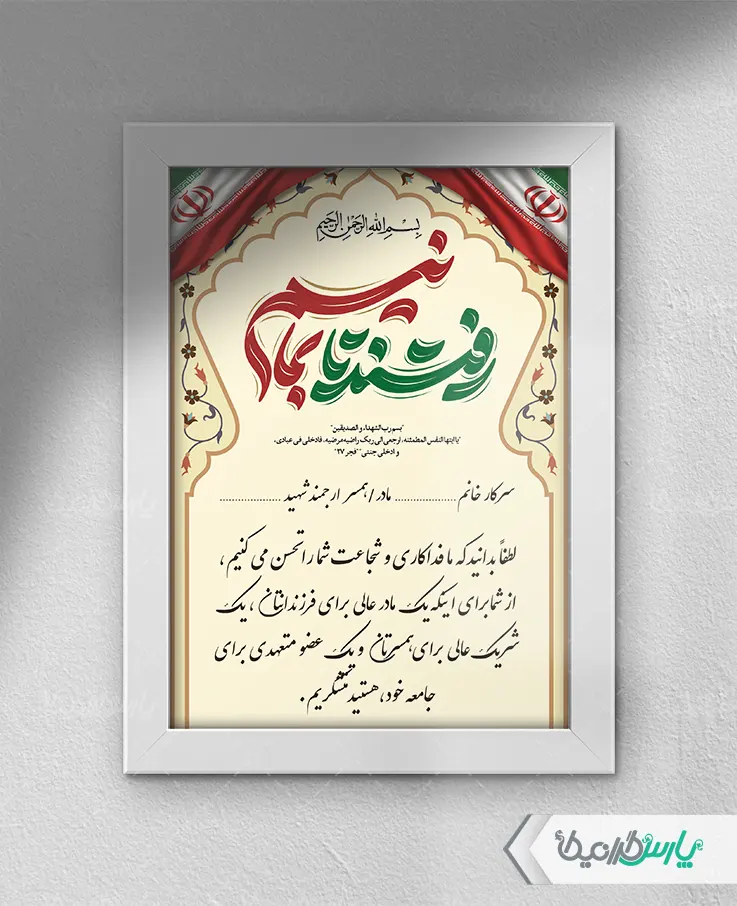 بسم الله الرحمن الرحیم
رفتند تا بمانیم
"بسم رب الشهداء والصدیقین"
"یا ایتها النفس المطمئنه، ارجعی الی ربک راضیه مرضیه، فادخلی فی عبادی،
و ادخلی جنتی" "فجر ۲۷"
سرکار خانم .................... مادر / همسر ارجمند شهید ....................
لطفاً بدانید که ما فداکاری و شجاعت شما را تحسن می کنیم ،
از شما برای اینکه یک مادر عالی برای فرزندانتان ، یک
شریک عالی برای همسرتان و یک عضو متعهدی برای
جامعه خود، هستید متشکریم .
پارس گرافیک